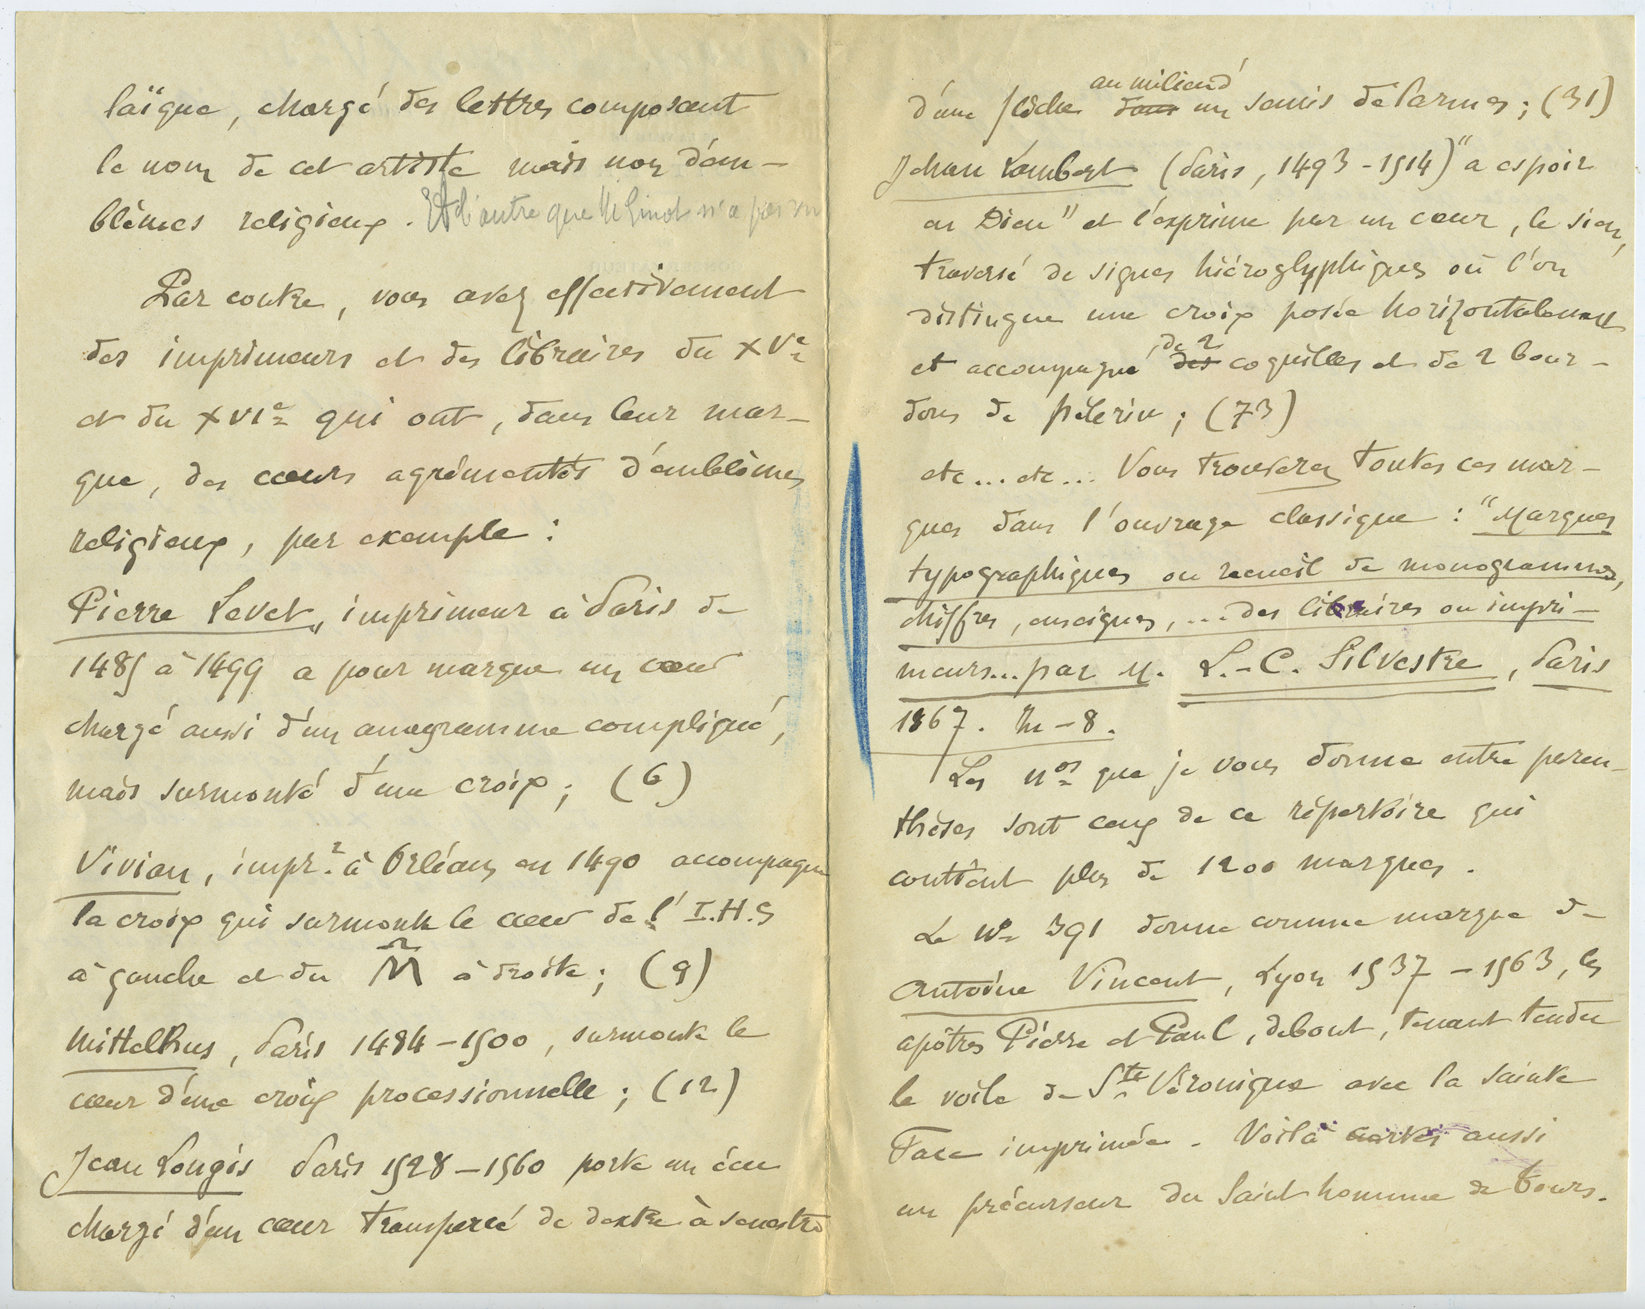 laïque, chargé des lettres composant
le nom de cet artiste mais non d'em-
blèmes religieux. Et d'autre que M Ginot n'a pas vu
Par contre, vous avez effectivement
des imprimeurs et des libraires du XVe
et du XVIe qui ont, dans leur mar-
que, des cœurs agrémentés d'emblèmes
religieux, par exemple :
Pierre Levet, imprimeur à Paris de
1485 à 1499 a pour marque un cœur
chargé aussi d'un anagramme compliqué,
mais surmonté d'une croix ; (6)
Vivian, impr. à Orléans en 1490 accompagne
la croix qui surmonte le cœur de l'I.H.S
à gauche et du M à droite ; (9)
Mittelhus, Paris 1484-1500, surmonte le
cœur d'une croix processionnelle ; (12)
Jean Longis Paris 1528-1560 porte un écu
chargé d'un cœur transpercé de dextre à senestre
au milieu d'
d'une flèche dans un semis de larmes ; (31)
Jehan Lambert (Paris, 1493-1514) "a espoir
en Dieu" et l'exprime par un cœur, le sien,
traversé de signes hiéroglyphiques où l'on
distingue une croix posée horizontalement
de 2
et accompagné des coquilles et de 2 bour-
dons de pèlerin ; (73)
etc... etc... Vous trouverez toutes ces mar-
ques dans l'ouvrage classique : "Marques
typographiques ou recueil de monogrammes,
chiffres, enseignes, ... des libraires ou impri-
meurs... par M. L.-C. Silvestre, Paris
1867. In-8.
Les nos que je vous donne entre paren-
thèses sont ceux de ce répertoire qui
contient plus de 1200 marques.
Le No 391 donne comme marque de
Antoine Vincent, Lyon 1537-1563, les
apôtres Pierre et Paul, debout, tenant tendu
le voile de Ste Véronique avec la sainte
Face imprimée. Voilà certes aussi
un précurseur du Saint homme de Tours.